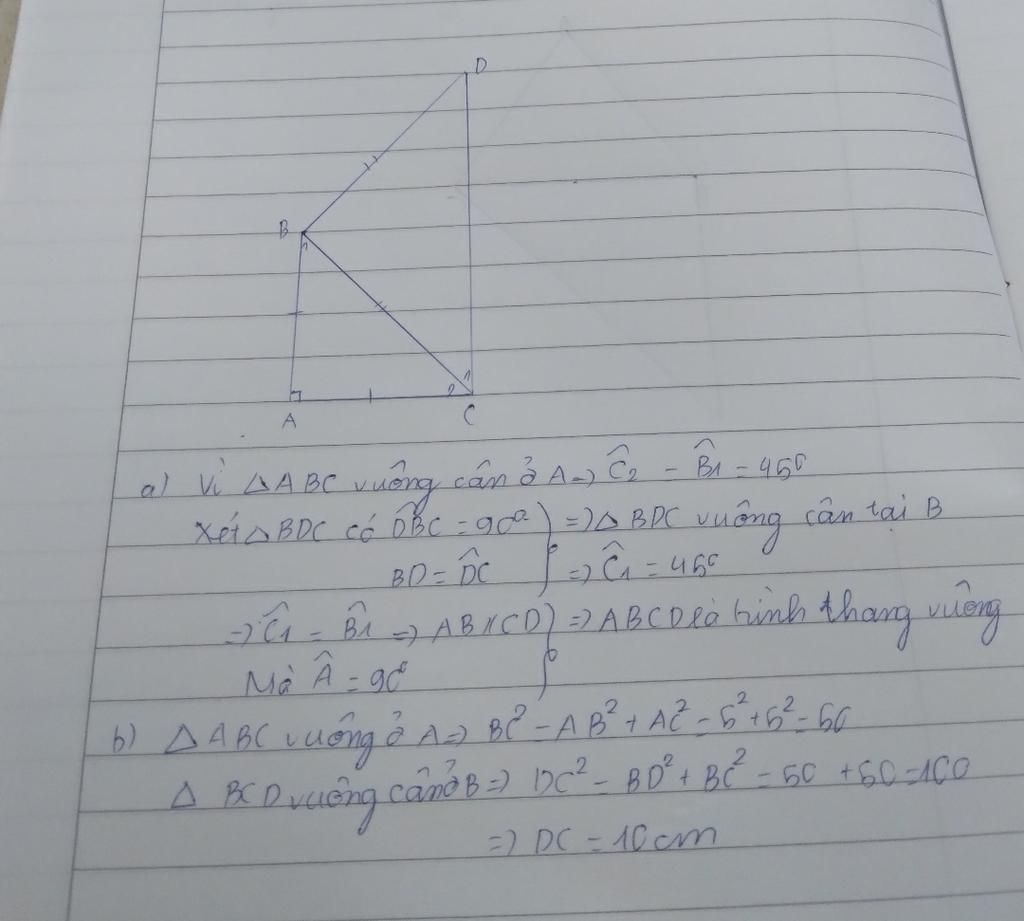 D
B
1
1
2
A
C
a) Vì △ABC vuông cân ở A => Ĉ2 = B̂1 = 45°
Xét △BDC có DB̂C = 90° } => △BDC vuông cân tại B
BD = DĈ } => Ĉ1 = 45°
=> Ĉ1 = B̂1 => AB // CD } => ABCD là hình thang vuông
Mà Â = 90°
b) △ABC vuông ở A => BC² = AB² + AC² = 5² + 5² = 50
△ BCD vuông cân ở B => DC² = BD² + BC² = 50 + 50 = 100
=> DC = 10cm